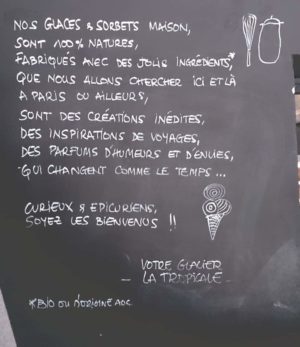 NOS GLACES & SORBETS MAISON,
SONT 100% NATURES,
FABRIQUÉS AVEC DES JOLIS INGRÉDIENTS,*
QUE NOUS ALLONS CHERCHER ICI ET LÀ
A PARIS OU AILLEURS,
SONT DES CRÉATIONS INÉDITES,
DES INSPIRATIONS DE VOYAGES,
DES PARFUMS D'HUMEURS ET D'ENVIES,
QUI CHANGENT COMME LE TEMPS...
CURIEUX & EPICURIENS,
SOYEZ LES BIENVENUS !!
VOTRE GLACIER
- LA TROPICALE -
*BIO OU AOC